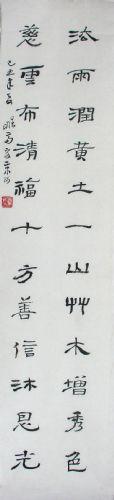 法雨潤黃土一山艸木增秀色
慈雲布清福十方善信沐恩光